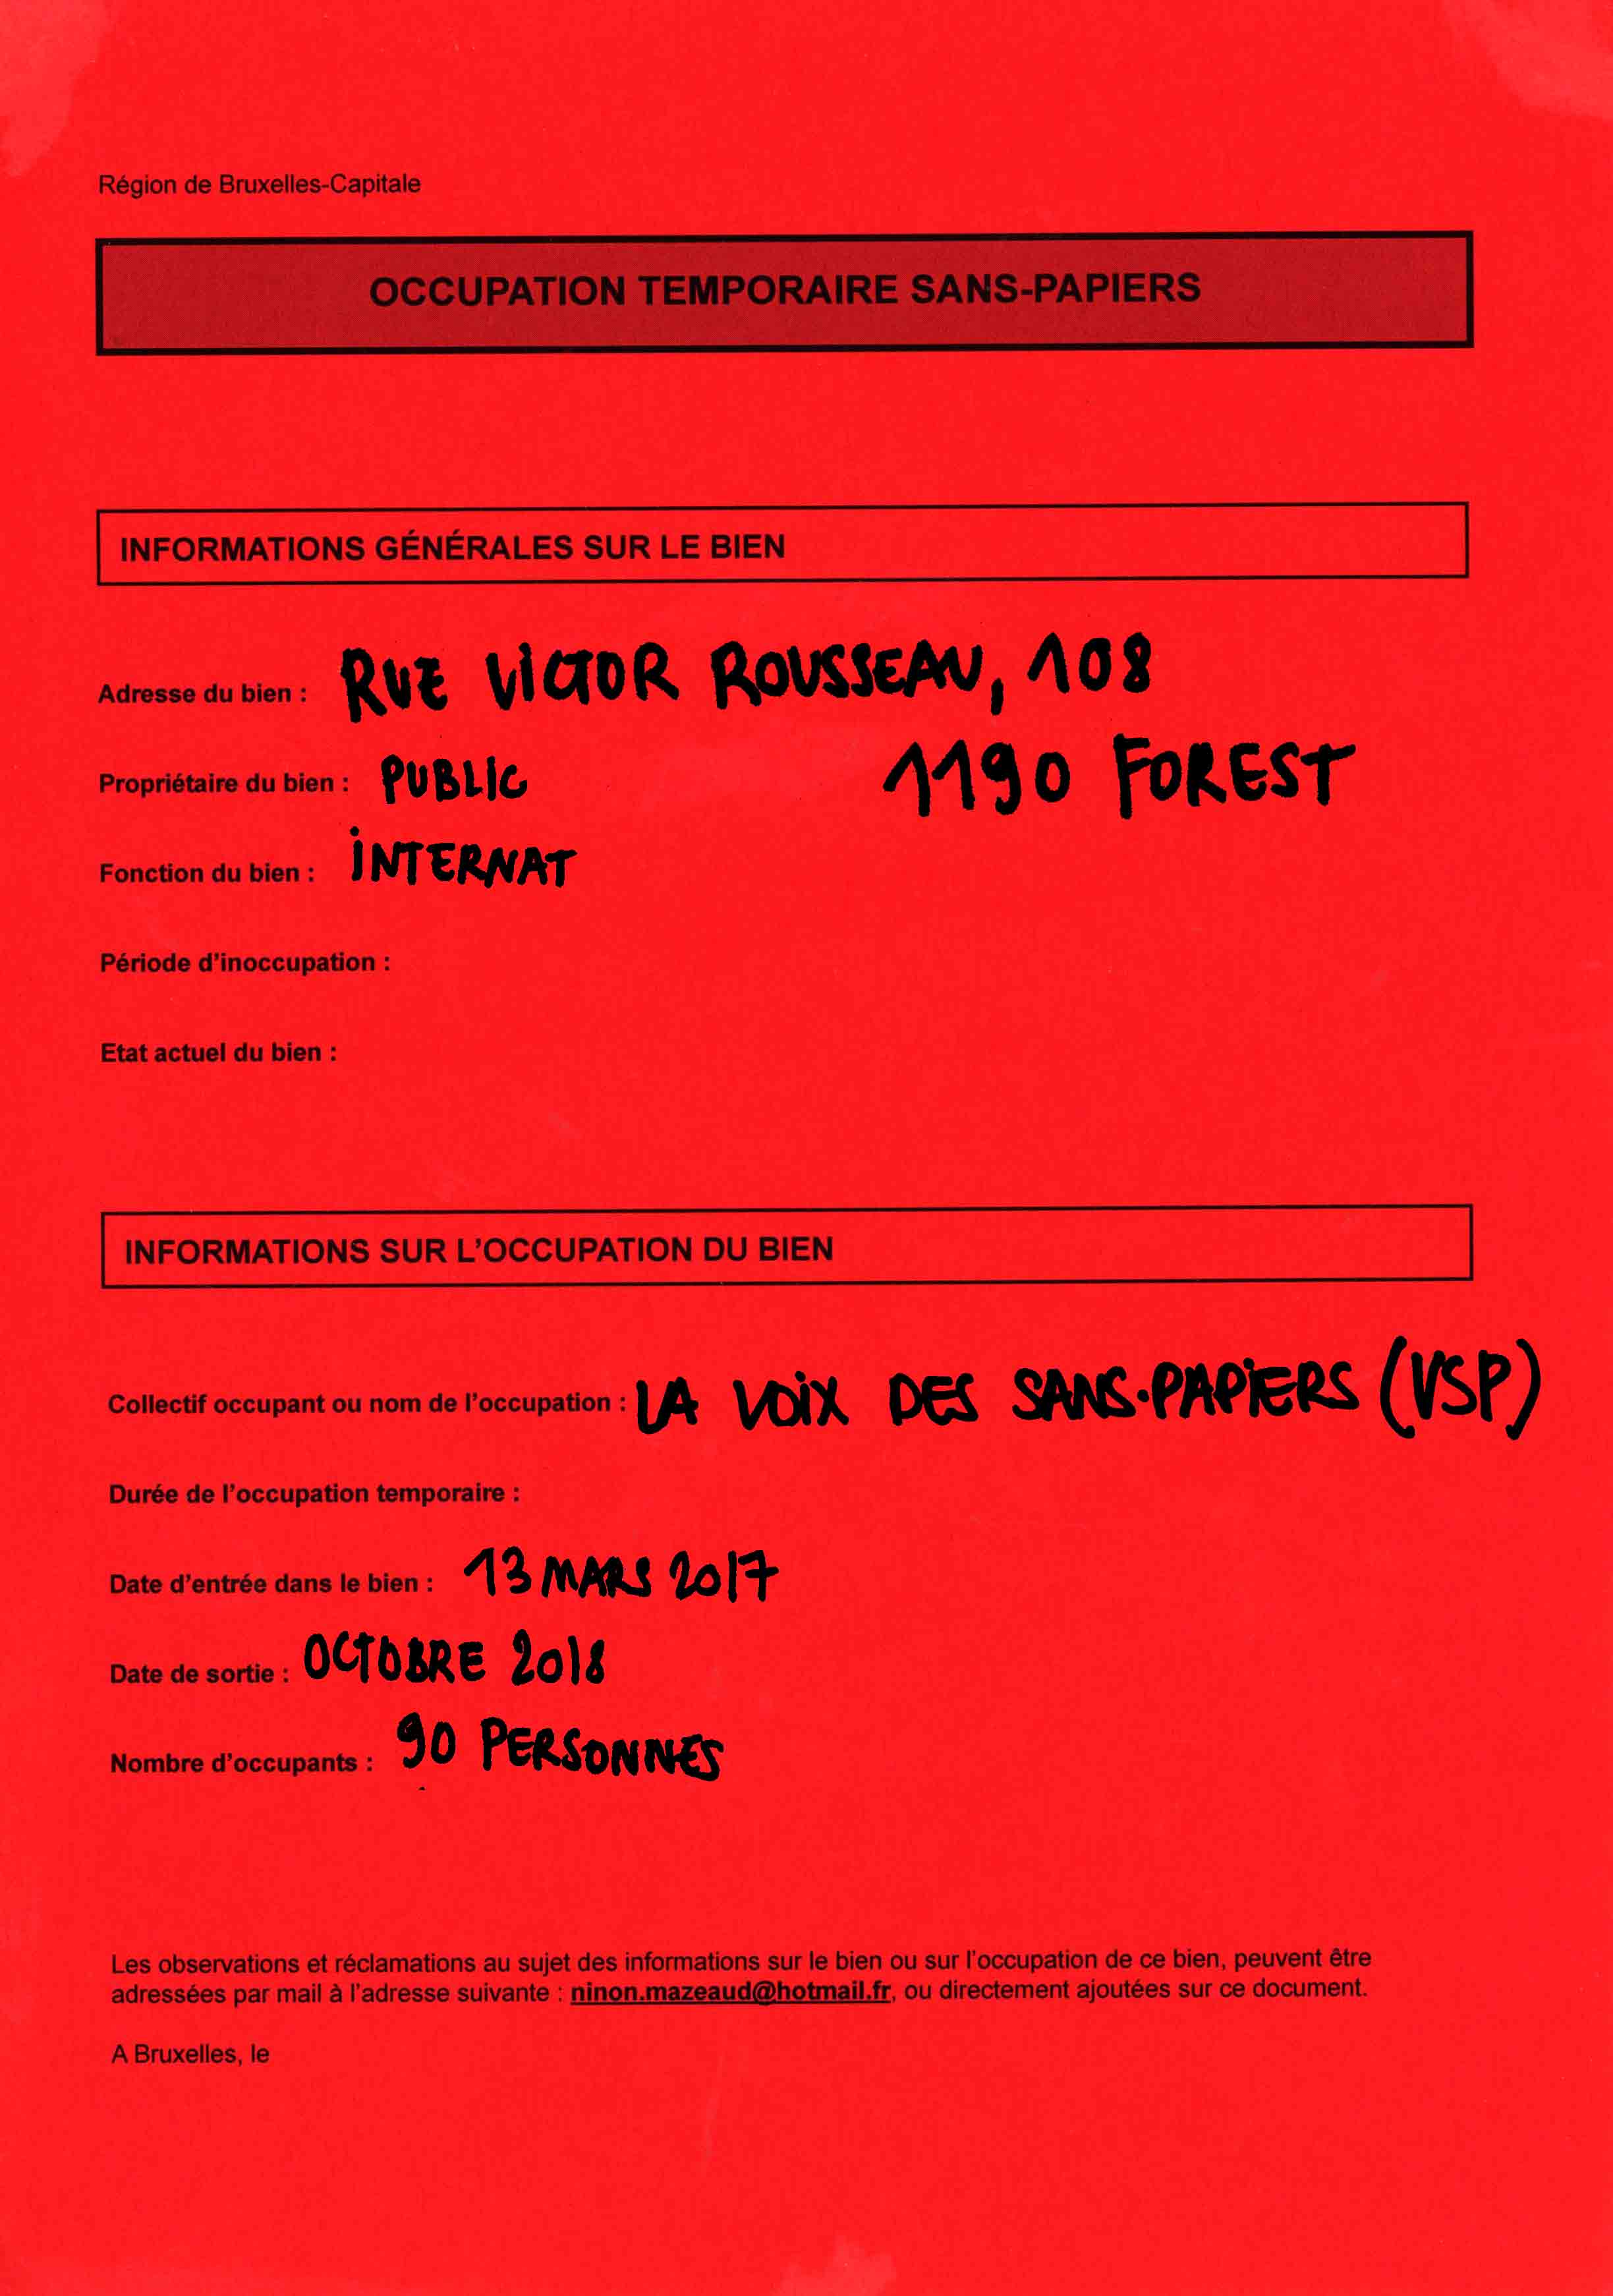 Région de Bruxelles-Capitale
OCCUPATION TEMPORAIRE SANS-PAPIERS
INFORMATIONS GÉNÉRALES SUR LE BIEN
Adresse du bien : RUE VICTOR ROUSSEAU, 108
1190 FOREST
Propriétaire du bien : PUBLIC
Fonction du bien : INTERNAT
Période d'inoccupation :
Etat actuel du bien :
INFORMATIONS SUR L'OCCUPATION DU BIEN
Collectif occupant ou nom de l'occupation : LA VOIX DES SANS-PAPIERS (VSP)
Durée de l'occupation temporaire :
Date d'entrée dans le bien : 13 MARS 2017
Date de sortie : OCTOBRE 2018
Nombre d'occupants : 90 PERSONNES
Les observations et réclamations au sujet des informations sur le bien ou sur l'occupation de ce bien, peuvent être
adressées par mail à l'adresse suivante : ninon.mazeaud@hotmail.fr, ou directement ajoutées sur ce document.
A Bruxelles, le